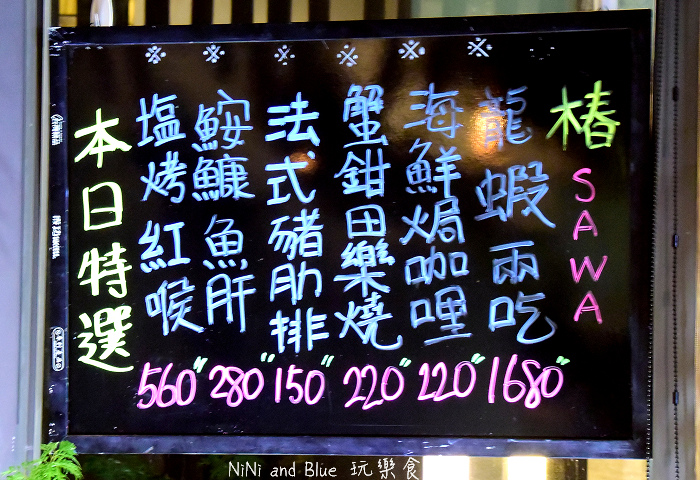 椿SAWA
龍蝦兩吃
1680
海鮮焗咖哩
220
蟹鉗田樂燒
220
法式豬肋排
150
鮟鱇魚肝
280
塩烤紅喉
560
本日特選
NiNi and Blue 玩樂食